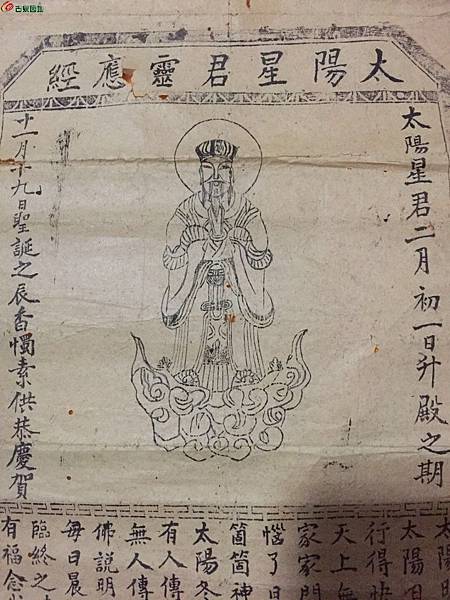 太陽星君靈應經
太陽星君二月初一日升殿之期
十一月十九日聖誕之辰香燭素供恭慶賀
太陽
太陽
行得快
天上無
家家門
惱了日
箇箇神
太陽冬
有人傳
無人傳
佛說明
每日晨
臨終之
有福念